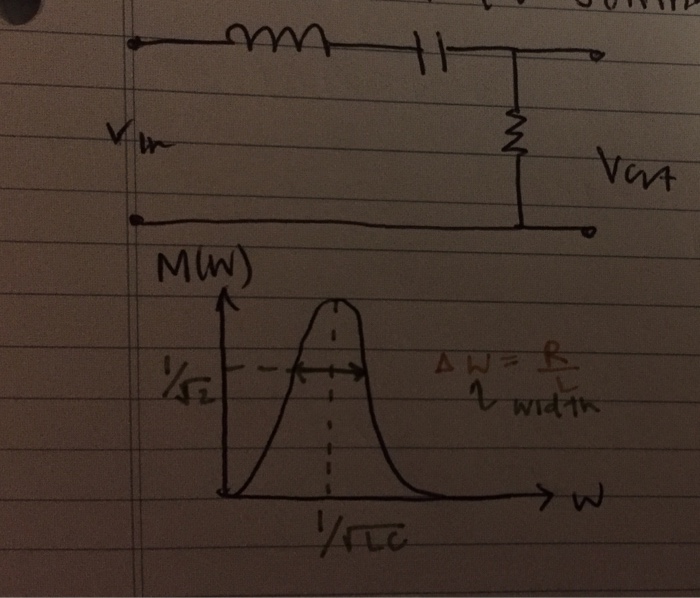 Vin
Vout
M(W)
1/√2
ΔW = R/L
width
W
1/√LC